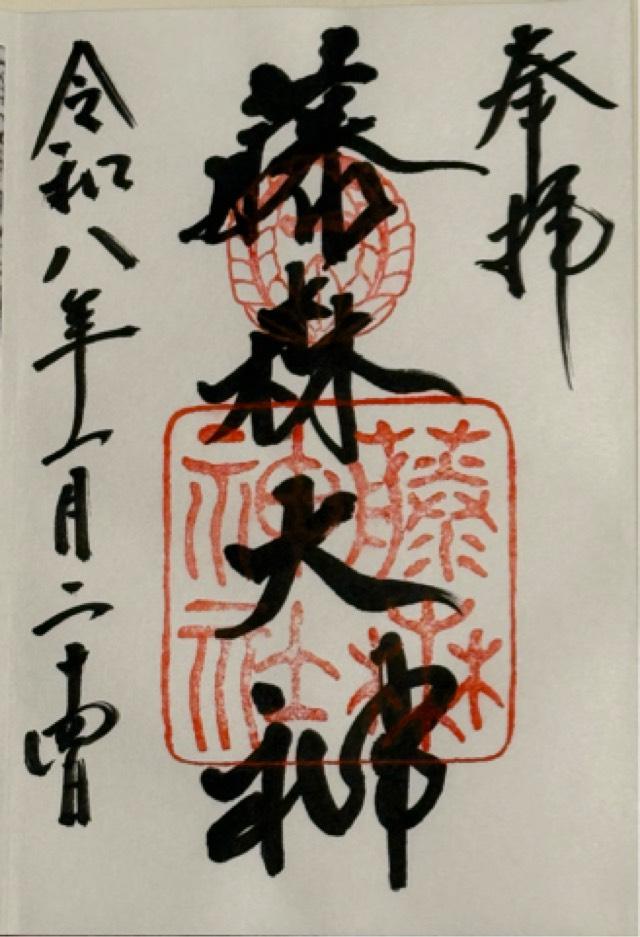 奉拝
藤森大神
藤森神社
令和八年一月二十四日